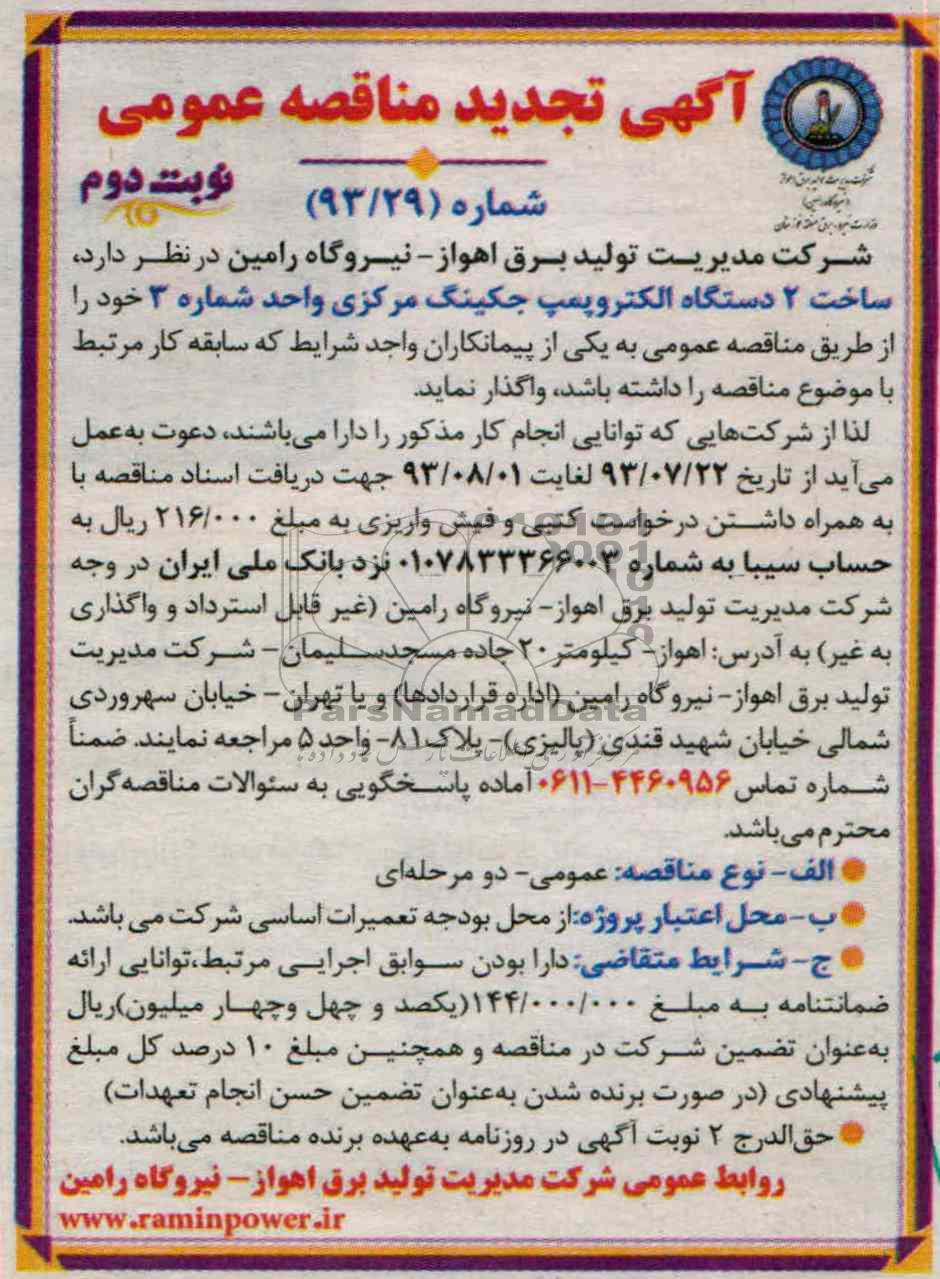 آگهی تجدید مناقصه عمومی
نوبت دوم
شماره (۹۳/۲۹)
شرکت مدیریت تولید برق اهواز
(نیروگاه رامین)
شرکت مدیریت تولید برق اهواز- نیروگاه رامین در نظر دارد،
ساخت ۲ دستگاه الکتروپمپ جکینگ مرکزی واحد شماره ۳ خود را
از طریق مناقصه عمومی به یکی از پیمانکاران واجد شرایط که سابقه کار مرتبط
با موضوع مناقصه را داشته باشد، واگذار نماید.
لذا از شرکت‌هایی که توانایی انجام کار مذکور را دارا می‌باشند، دعوت به‌عمل
می‌آید از تاریخ ۹۳/۰۷/۲۲ لغایت ۹۳/۰۸/۰۱ جهت دریافت اسناد مناقصه با
به همراه داشتن درخواست کتبی و فیش واریزی به مبلغ ۲۱۶/۰۰۰ ریال به
حساب سیبا به شماره ۰۱۰۷۸۳۳۳۶۶۰۰۳ نزد بانک ملی ایران در وجه
شرکت مدیریت تولید برق اهواز- نیروگاه رامین (غیر قابل استرداد و واگذاری
به غیر) به آدرس: اهواز- کیلومتر ۲۰ جاده مسجدسلیمان- شرکت مدیریت
تولید برق اهواز- نیروگاه رامین (اداره قراردادها) و یا تهران- خیابان سهروردی
شمالی خیابان شهید قندی (پالیزی)- پلاک ۸۱- واحد ۵ مراجعه نمایند. ضمناً
شماره تماس ۴۴۶۰۹۵۶-۰۶۱۱ آماده پاسخگویی به سئوالات مناقصه‌گران
محترم می‌باشد.
الف- نوع مناقصه: عمومی- دو مرحله‌ای
ب- محل اعتبار پروژه: از محل بودجه تعمیرات اساسی شرکت می باشد.
ج- شرایط متقاضی: دارا بودن سوابق اجرایی مرتبط، توانایی ارائه
ضمانتنامه به مبلغ ۱۴۴/۰۰۰/۰۰۰ (یکصد و چهل وچهار میلیون) ریال
به‌عنوان تضمین شرکت در مناقصه و همچنین مبلغ ۱۰ درصد کل مبلغ
پیشنهادی (در صورت برنده شدن به‌عنوان تضمین حسن انجام تعهدات)
حق‌الدرج ۲ نوبت آگهی در روزنامه به‌عهده برنده مناقصه می‌باشد.
روابط عمومی شرکت مدیریت تولید برق اهواز- نیروگاه رامین
www.raminpower.ir
ParsNamadData